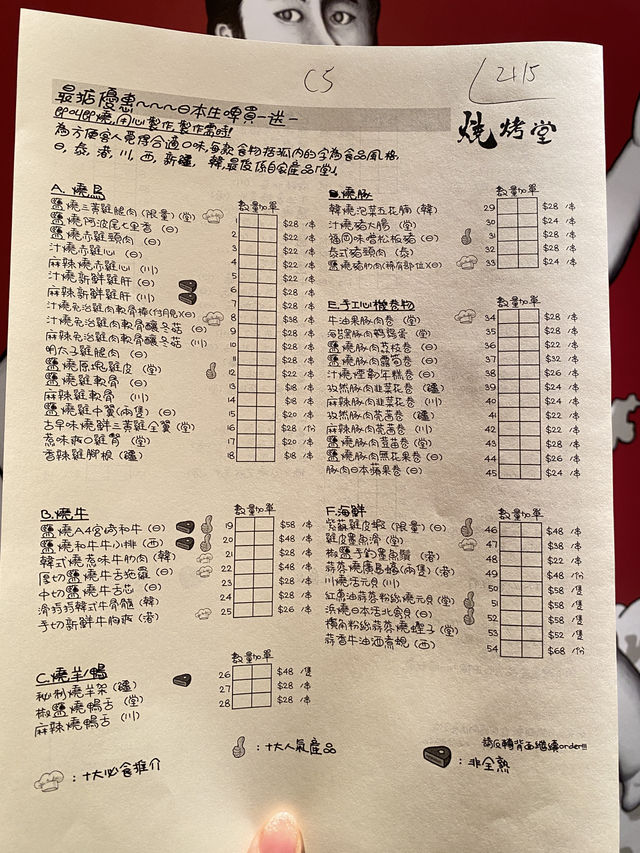 C5
2115
最抵優惠~~~日本生啤買一送一
為方便客人覓得合適口味,每款食物括弧內的字為食品風格,
日, 泰, 港, 川, 西, 新疆, 韓, 最後係自家產品「堂」
燒烤堂
A. 燒鳥
數量 加單
鹽燒三黃雞腿肉(限量)(堂) 1 $28 /本
鹽燒阿波尾七里香 (日) 2 $22 /本
鹽燒赤雞頸肉 (日) 3 $22 /本
汁燒赤雞心 (日) 4 $22 /本
麻辣燒赤雞心 (川) 5 $22 /本
汁燒新鮮雞肝 (日) 6 $22 /本
麻辣新鮮雞肝 (川) 7 $28 /本
汁燒免治雞肉軟骨棒 8 $38 /本
汁燒免治雞肉軟骨釀冬菇 (日) 9 $38 /本
麻辣免治雞肉軟骨釀冬菇 (川) 10 $38 /本
明太子雞腿肉 (日) 11
鹽燒原塊雞皮 (堂) 12 $22 /本
鹽燒雞軟骨 (日) 13 $18 /本
麻辣雞軟骨 (川) 14 $18 /本
鹽燒雞中翼(兩隻)(日) 15 $20 /本
古早味燒鮮三黃雞全翼 (堂) 16 $28 /份
惹味椒雞腎 (堂) 17 $20 /本
香辣雞腳根 (疆) 18 $18 /本
B. 燒牛
數量 加單
鹽燒A4宮崎和牛 (日) 19 $58 /本
鹽燒和牛牛小排 (西) 20 $48 /本
韓式燒惹味牛肋肉 (韓) 21 $28 /本
厚切鹽燒牛舌 (疆) 22 $48 /本
中切鹽燒牛舌芯 (日) 23 $28 /本
滑捋捋韓式牛骨髓 (韓) 24 $28 /本
手切新鮮牛胸爽 (港) 25 $26 /本
C. 燒羊/鴨
數量 加單
秘制燒羊架 (疆) 26 $48 /隻
椒鹽燒鴨舌 (堂) 27 $28 /本
麻辣燒鴨舌 (川) 28 $28 /本
D. 燒豚
數量 加單
韓燒泡菜五花腩 (韓) 29 $28 /本
汁燒豬大腸 (堂) 30 $24 /本
福岡味噌松板豬 (日) 31 $28 /本
泰式豬頸肉 (泰) 32 $28 /本
鹽燒豬肋肉(稀有部位)(日) 33 $24 /本
E. 手工心機卷物
數量 加單
牛油果豚肉卷 (堂) 34 $28 /本
海苔黑豚肉鵪鶉蛋 (堂) 35 $28 /本
鹽燒豚肉荔枝卷 (日) 36 $22 /本
鹽燒豚肉露筍卷 (日) 37 $32 /本
汁燒煙彰年糕卷 (日) 38 $26 /本
孜然豚肉韭菜花卷 (疆) 39 $24 /本
麻辣豚肉韭菜花卷 (川) 40 $24 /本
孜然豚肉芫荽卷 (疆) 41 $22 /本
麻辣豚肉芫荽卷 (川) 42 $22 /本
鹽燒豚肉豆苗卷 (日) 43 $28 /本
鹽燒豚肉無花果卷 (日) 44 $26 /本
豚肉日本蘋果卷 (日) 45 $24 /本
F. 海鮮
數量 加單
紫蘇雞皮蝦 (限量)(日) 46 $48 /本
雞皮墨魚滑 (堂) 47 $38 /本
椒鹽手釣墨魚鬚 (港) 48 $28 /本
蒜蓉燒廣島蠔(兩隻)(港) 49 $48 /份
川燒活元貝 (川) 50 $58 /隻
紅蔥油蒜蓉粉絲燒元貝 (堂) 51 $58 /隻
浜燒日本活北寄貝 (日) 52 $58 /隻
橫角粉絲蒜蓉燒蟶子 (堂) 53 $52 /隻
蒜香牛油酒煮蜆 (西) 54 $68 /份
:十大必食推介
:十大人氣產品
請反轉背面繼續order!!!
:非全熟